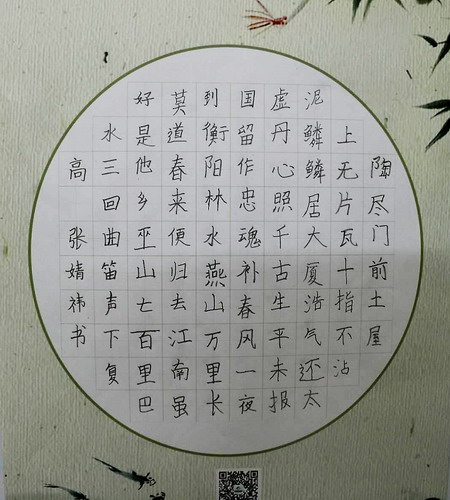 陶尽门前土屋
上无片瓦十指不沾
泥鳞鳞居大厦浩气还太
虚丹心照千古生平未报
国留作忠魂补春风一夜
到衡阳林水燕山万里长
莫道春来便归去江南虽
好是他乡巫山七百里巴
水三回曲笛声下复
高 张婧祎书